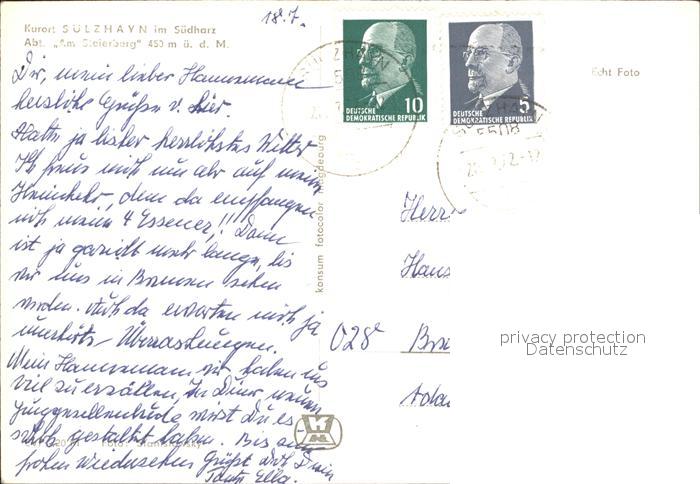 Kurort SÜLZHAYN im Südharz
Abt. „Am Steierberg" 450 m ü. d. M.
18.7.
Echt Foto
Dir, mein lieber Hannsmann
herzliche Grüße v. hier.
Hatte ja bisher herrlichstes Wetter
Ich freue mich nun aber auf meine
Heimkehr, denn da empfangen
mich meine 4 Essener!! Dann
ist ja gar nicht mehr lange, bis
wir uns in Bremen sehen
werden. Auch da erwarten mich ja
Überraschungen.
Mein Hannsmann wir haben uns
viel zu erzählen, In Deiner neuen
Junggesellenbude wirst Du es
schön gestaltet haben. Bis zum
frohen Wiedersehen grüßt Dich Deine
Tante Ella.
konsum fotocolor magdeburg
10
DEUTSCHE
DEMOKRATISCHE REPUBLIK
5
DEUTSCHE
DEMOKRATISCHE REPUBLIK
5508
Herrn
Hans
028 Bre
privacy protection
Datenschutz